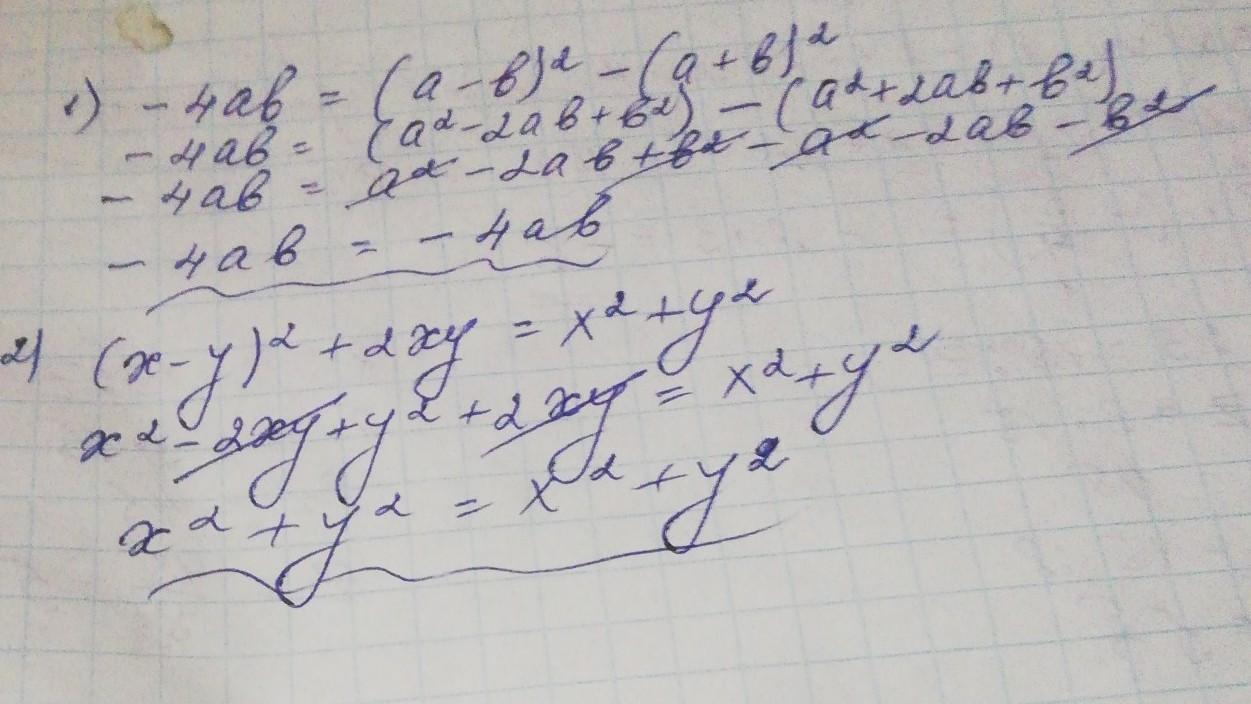 1) - 4ab = (a - b)² - (a + b)²
- 4ab = (a² - 2ab + b²) - (a² + 2ab + b²)
- 4ab = a² - 2ab + b² - a² - 2ab - b²
- 4ab = - 4ab
2) (x - y)² + 2xy = x² + y²
x² - 2xy + y² + 2xy = x² + y²
x² + y² = x² + y²